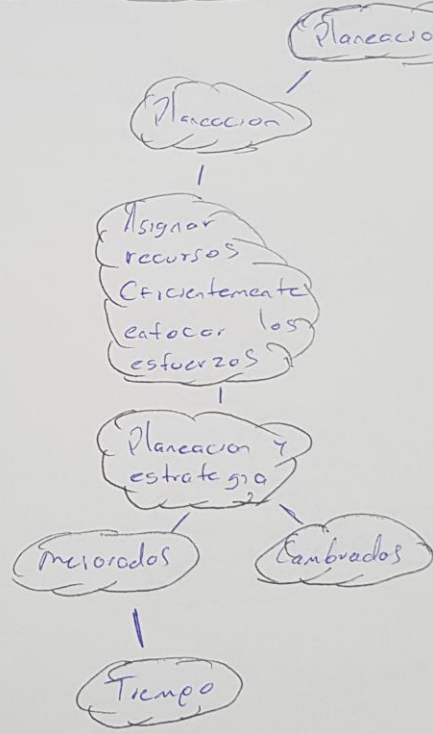 Planeacio
Planeacion
Asignar
recursos
Eficientemente
enfocar los
esfuerzos
Planeacion y
estrategia
mejorados
Cambiados
Tiempo